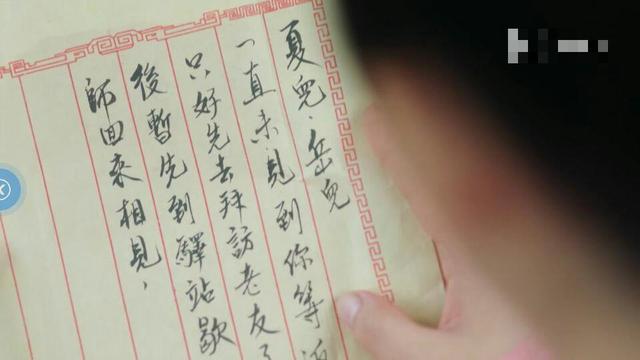 夏兒、岳兒
一直未見到你等
只好先去拜訪老友
後暫先到驛站歇
師回來相見，